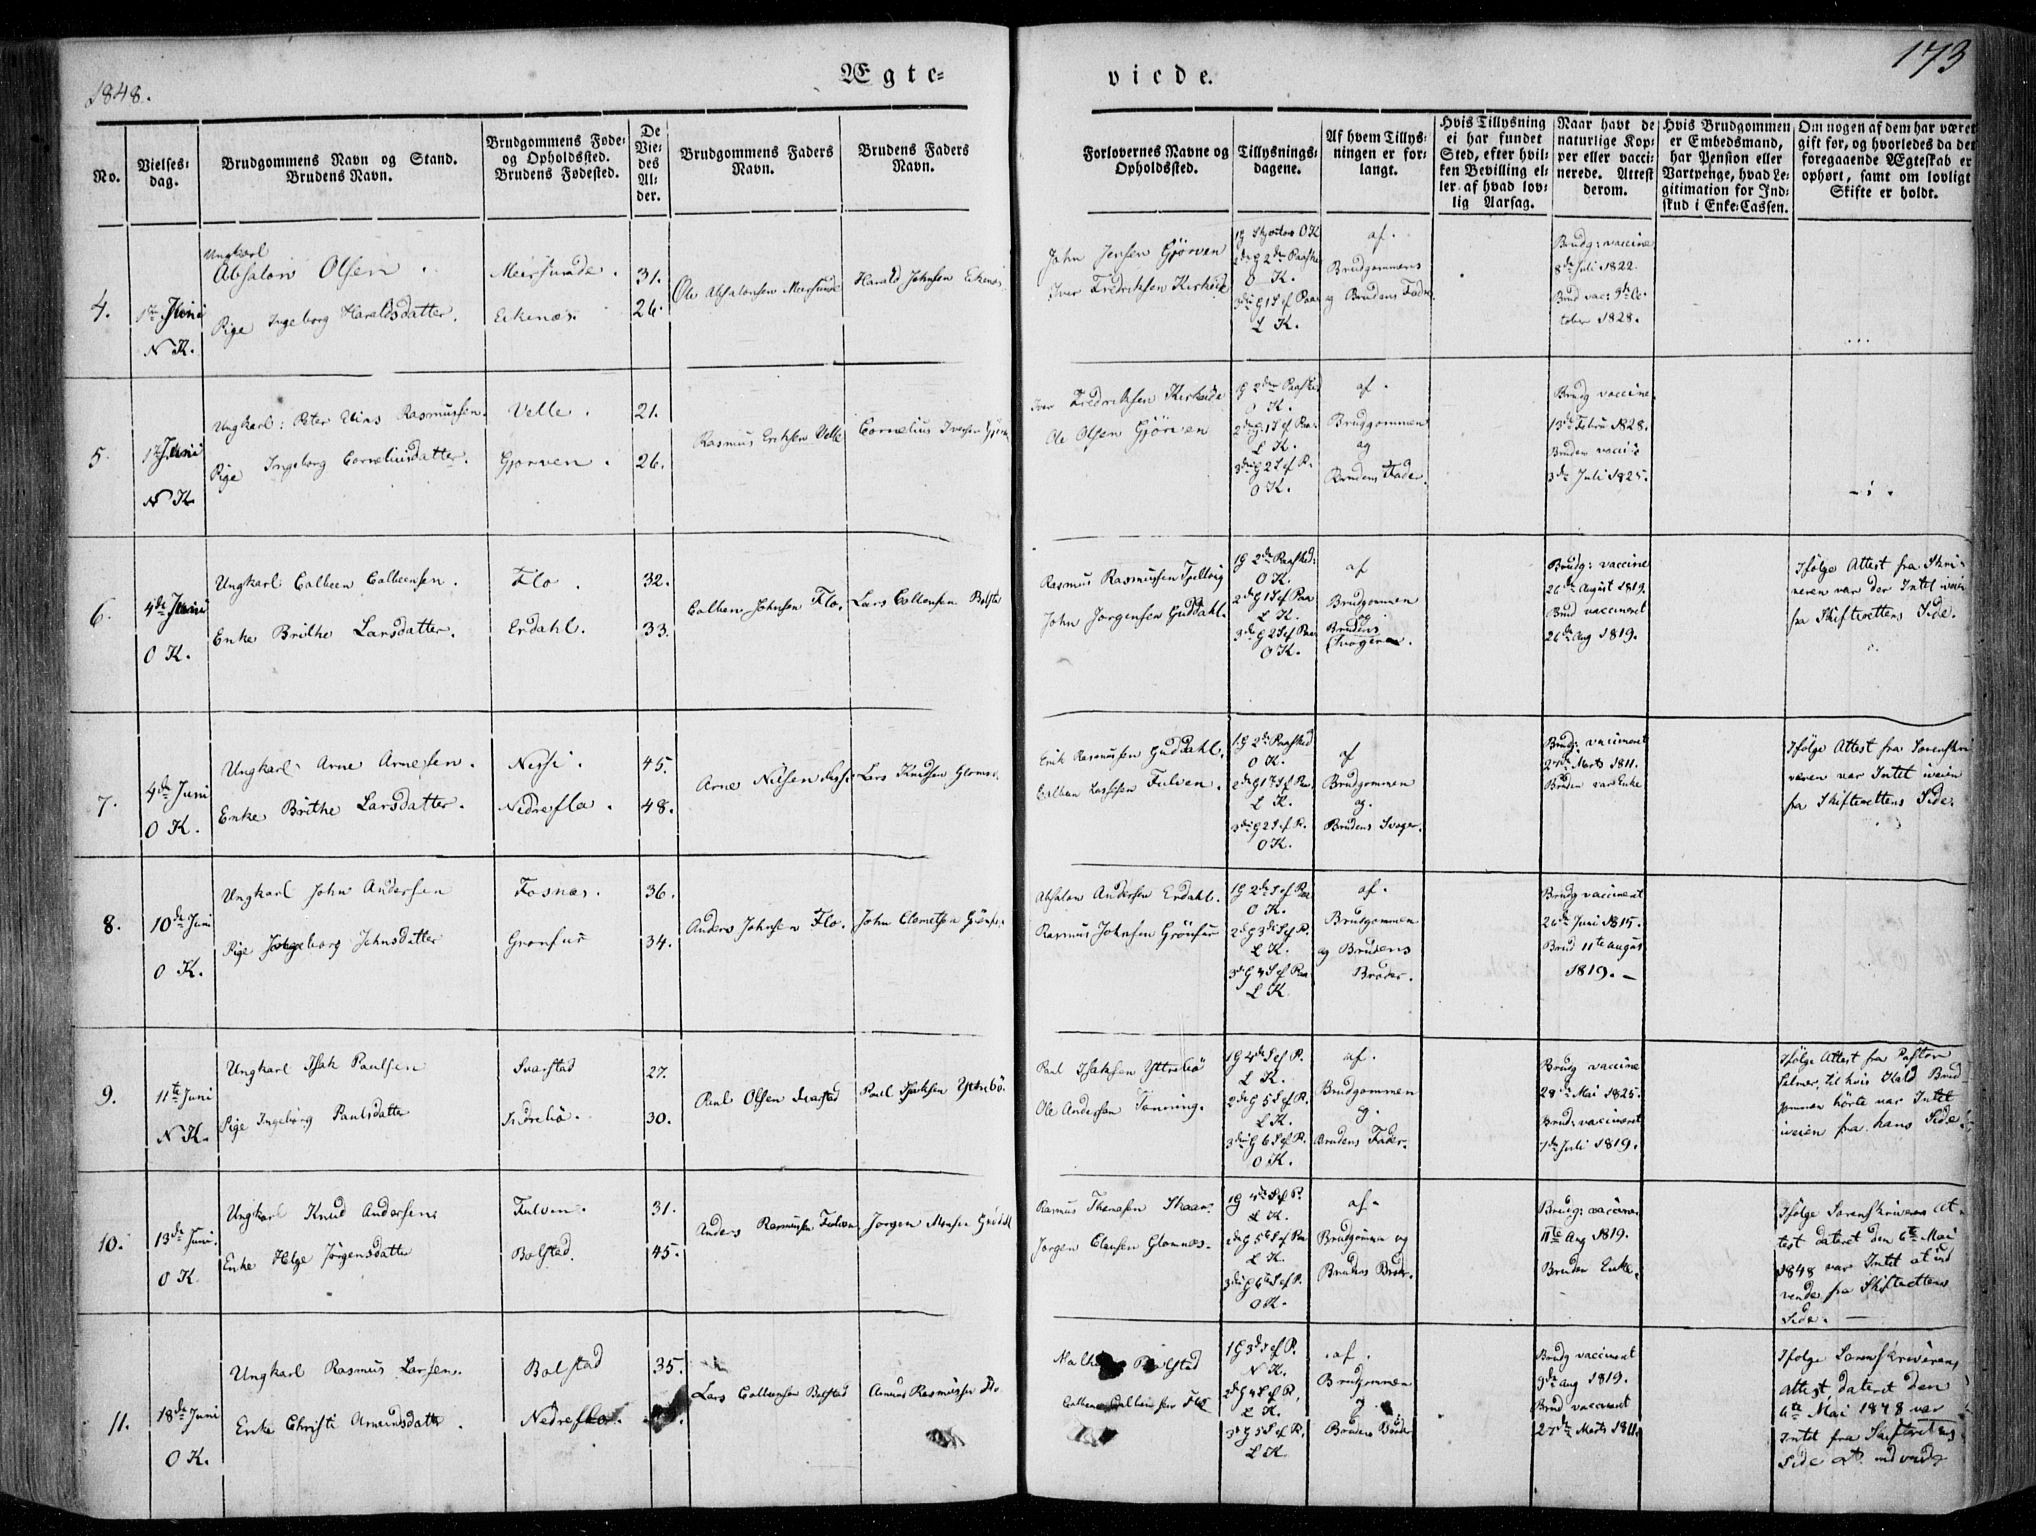 1848.
Ægte=
viede.
173
No.
Vielses=
dag.
Brudgommens Navn og Stand.
Brudens Navn.
Brudgommens Føde=
og Opholdssted.
Brudens Fødested.
De
Vie=
des
Al=
der.
Brudgommens Faders
Navn.
Brudens Faders
Navn.
Forlovernes Navne og
Opholdssted.
Tillysnings=
dagene.
Af hvem Tillys=
ningen er for=
langt.
Hvis Tillysning
ei har fundet
Sted, efter hvil=
ken Bevilling el=
ler af hvad lov=
lig Aarsag.
Naar havt de
naturlige Kop=
per eller vacci=
nerede. Attest
derom.
Hvis Brudgommen
er Embedsmand,
har Pension eller
Vartpenge, hvad Le=
gitimation for Ind=
skud i Enke=Cassen.
Om nogen af dem har været
gift før, og hvorledes da det
foregaaende Ægteskab er
ophørt, samt om lovligt
Skifte er holdt.
4.
1ste Juni
N K.
Ungkarl
Absalon Olsen
Pige Ingeborg Haraldsdatter.
Meirsunde.
Eikenæs.
31.
26.
Ole Absalonsen Meirsunde
Harald Johnsen Eikenæs
John Jensen Gjørven
Iver Fredriksen Kirkeide
O K
2de g 2den Paaske
O K.
L K.
af
Brudgommens
og Brudens Fader.
Brudg: vaccine
8de Juli 1822.
Brud vac: 9de Oc
tober 1828.
5.
1ste Juni
N K
Ungkarl: Peter Rasmussen.
Pige Ingeborg Corneliusdatter.
Velle.
Gjørven.
21.
26.
Rasmus Eriksen Velle
Cornelius Iversen Gjørven
Iver Fredriksen Kirkeide
Ole Olsen Gjørven
O K.
L K.
O K.
af.
Brudgommen
og
Brudens Fader.
Brudg vaccine
13de Febru 1828.
Bruden vacci
3de Juli 1825.
6.
4de Juni
O K.
Ungkarl Colbeen Colbeensen.
Enke Brithe Larsdatter.
Flo.
Erdahl.
32.
33.
Colben Johnsen Flo.
Lars Colbensen Bolstad
Rasmus Rasmussen Tjellvig
John Jørgensen Guddahl.
1 g 2den Paasked:
O K.
L K.
O K.
af
Brudgommen
og
Brudens
Svogeren.
Brudg: vaccine
26de August 1819.
Brud vaccineret
26de Aug 1819.
Ifølge Attest fra Skri=
veren var der Intet iveien
fra Skifterettens Side.
7.
4de Juni
O K.
Ungkarl Arne Arnesen.
Enke Brithe Larsdatter.
Nessi.
Nedreflo.
45.
48.
Arne Nilsen Nessi
Lars Knudsen Glomnæs.
Erik Rasmusen Guddahl.
Fulven.
1 g 2den Paasked
O K.
L K.
O K.
af
Brudgommen
og
Brudens Svoger.
Brudg: vaccineret
27de Marts 1811.
Bruden var Enke
Ifølge Attest fra Sorenskri
veren var Intet iveien
fra Skifterettens Side.
8.
10de Juni
O K.
Ungkarl John Andersen
Pige Ingeborg Johnsdatter
Fosnæs.
Grønfur
36.
34.
Anders Johnsen Flo.
John Clemetsen Grønfur.
Absalon Andersen Erdahl.
Rasmus Johnsen Grønfur
O K.
L K.
L K
af.
Brudgommen
og Brudens
Broder.
Brudg vaccineret
26de Juni 1815.
Brud 11te August
1819. —
9.
11te Juni
N K.
Ungkarl Isak Paulsen
Pige Ingeborg Paulsdatter
Svarstad
Ytrebø.
27.
30.
Paul Olsen Svarstad
Paul Isaksen Yttrebø.
Paul Isaksen Yttrebø
Ole Andersen Tonning.
1 g 4de S ef P.
L K.
2de g 5 S ef P.
L K.
3die g 6 S ef P.
O K.
af.
Brudgommen
og.
Brudens Fader.
Brudg vaccine
28de Mai 1825.
Brud: vaccineret
7de Juli 1819.
Ifølge Attest fra Pastor
til hvis Kald Brud=
gommen hørte var Intet
iveien fra hans Side.
10.
13de Juni.
O K.
Ungkarl Knud Andersen
Enke Helge Jørgensdatter
Fulven.
Bolstad.
31.
45.
Anders Rasmussen Fulven
Jørgen Monsen
Rasmus Thomasen Skaar.
Jørgen Clausen Glomnæs.
1 g 4de S ef P.
L K.
L K.
O K.
af.
Brudgommen og
Brudens Broder.
Brudg: vaccine
11te Aug 1819.
Bruden Enke.
Ifølge Sorenskriverens At=
test dateret den 6te Mai
1848 var Intet at ind
vende fra Skifterettens
Side. —
11.
18de Juni
O K.
Ungkarl Rasmus Larsen.
Enke Christi Amundsdatter
Bolstad
Nedreflo.
35.
Lars Colbensen Bolstad
Rasmussen Flo
Bolstad
Flo
1 g 3de S ef P.
N K.
2de g 4 S ef P.
L K.
3de g 5 S ef P.
L K.
af.
Brudgommen
og
Brudens Broder
Brudg vaccineret
9de Aug 1819.
Brud vaccineret
27de Marts 1811.
Ifølge Sorenskriverens
Attest, dateret den
6te Mai 1848 var
Intet fra Skifterettens
Side at indvende